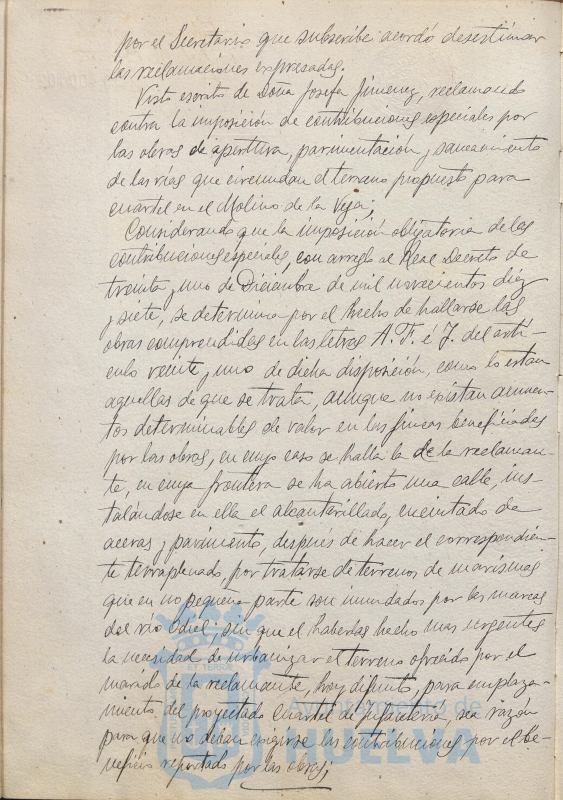 por el Secretario que subscribe acordó desestimar
las reclamaciones expresadas.
Visto escrito de Doña Josefa Jimenez, reclamando
contra la imposición de contribuciones especiales por
las obras de apertura, pavimentación y saneamiento
de las vías que circundan el terreno propuesto para
cuartel en el Molino de la Vega;
Considerando que la imposición obligatoria de las
contribuciones especiales, con arreglo al Real Decreto de
treinta y uno de Diciembre de mil novecientos diez
y siete, se determina por el hecho de hallarse las
obras comprendidas en las letras A. F. é J. del artí-
culo veinte y uno de dicha disposición, como lo estan
aquellas de que se trata, aunque no existan aumen-
tos determinables de valor en las fincas beneficiadas
por las obras, en cuyo caso se halla la de la reclaman-
te, en cuya frontera se ha abierto una calle, ins-
talándose en ella el alcantarillado, encintado de
aceras y pavimento, después de hacer el correspondien-
te terraplenado, por tratarse de terrenos de marismas
que en no pequeña parte son inundados por las mareas
del río Odiel; sin que el haberlas hecho mas urgentes
la necesidad de urbanizar el terreno ofrecido por el
marido de la reclamante, hoy difunto, para emplaza-
miento del proyectado Cuartel de Infantería, sea razón
para que no deban exigirse las contribuciones por el be-
neficio reportado por las obras;
Ayuntamiento de
HUELVA